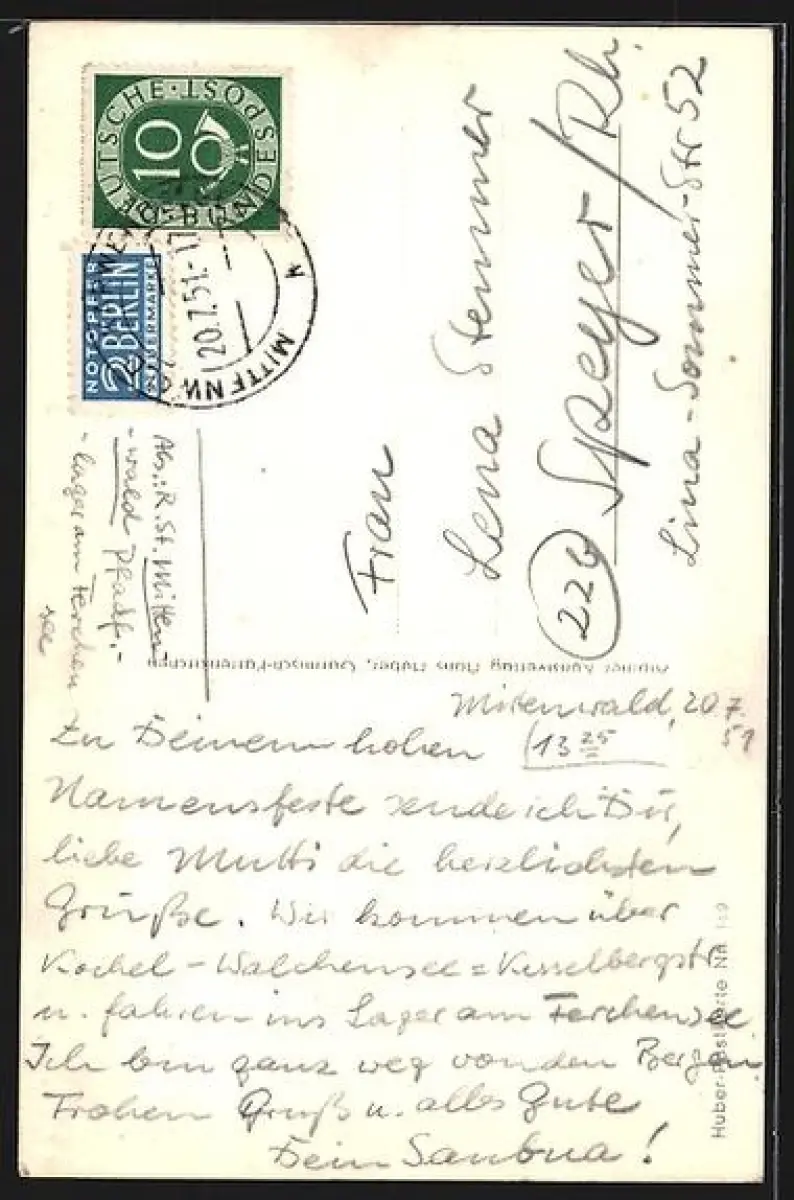 DEUTSCHE BUNDESPOST
10
NOTOPFER
2 BERLIN
STEUERMARKE
MITTENW
20.7.51.-17
Frau
Lena Stemmer
(22b) Speyer/Rh.
Lina-Sommer-Str 52
Abs.: R. St. Mitten-
-wald Pfadf.-
-lager am Ferchen
see
Alpiner Kunstverlag Hans Huber, Garmisch-Partenkirchen
Mittenwald, 20.7.
51
(13 25
Zu Deinem hohen
Namensfeste sende ich Dir,
liebe Mutti die herzlichsten
Grüße. Wir kommen über
Kochel-Walchensee=Kesselbergstr
u. fahren ins Lager am Ferchensee
Ich bin ganz weg von den Bergen
Frohen Gruß u. alles Gute
Dein
Huber-Postkarte Nr.